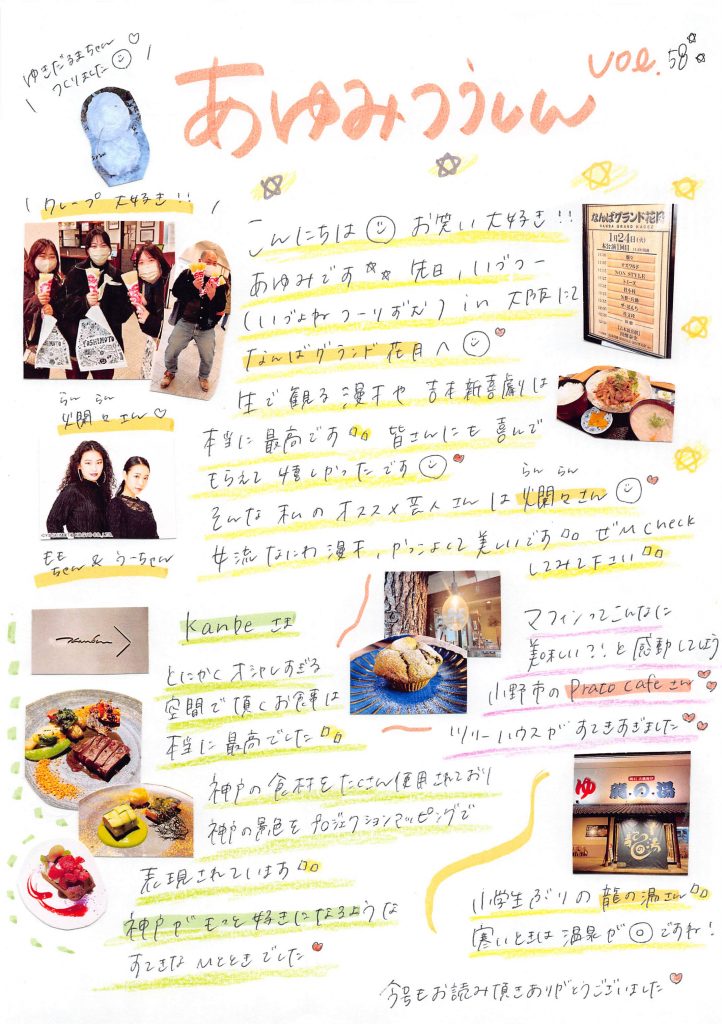 ゆきだるまちゃん♡
つくりました☺
あゆみつうしん
vol.58
クレープ 大好き!!
YOSHIMOTO
らん らん
爛々さん♡
ももちゃん & うーちゃん
こんにちは☺ お笑い大好き!!
あゆみです☆☆ 先日、いづつー
(いづよねつーりずむ) in 大阪にて
なんばグランド花月へ☺
生で観る漫才や吉本新喜劇は
本当に最高です 皆さんにも喜んで
もらえて嬉しかったです☺
らん らん
そんな私のオススメ芸人さんは爛々さん☺
女流なにわ漫才、かっこよくて美しいです ぜひcheck
してみて下さい
なんばグランド花月
NAMBA GRAND KAGETSU
1月24日(火)
本公演1回目
NON STYLE
Kanbe
Kanbe さま
とにかくオシャレすぎる
空間で頂くお食事は
本当に最高でした
神戸の食材をたくさん使用されており
神戸の景色をプロジェクションマッピングで
表現されています
神戸がもっと好きになるような
すてきなひとときでした♥
マフィンってこんなに
美味しい?!と感動してしまう
小野市のPrato Cafeさん♥
ツリーハウスがすてきすぎました♥
ゆ
龍の湯
小学生ぶりの龍の湯さん
寒いときは温泉が◎ですね!
今号もお読み頂きありがとうございました♥